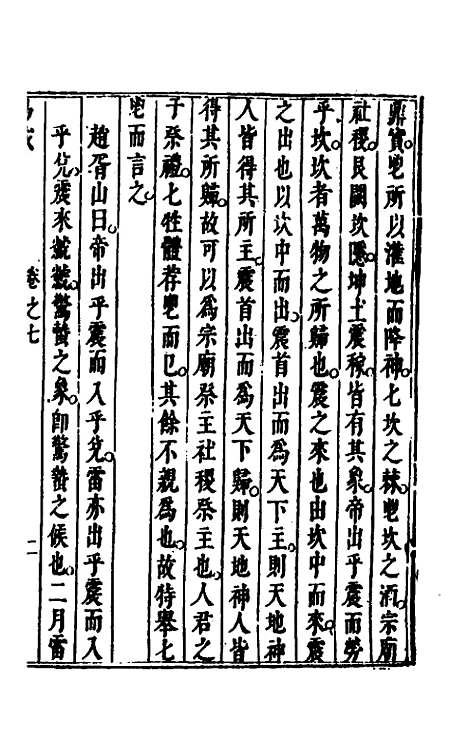 鼎實鬯所以灌地而降神七坎之棘鬯坎之酒宗廟
社稷艮闕坎隱坤土震稼皆有其象帝出乎震而勞
乎坎坎者萬物之所歸也震之來也由坎中而來震
之出也以坎中而出震首出而爲天下主則天地神
人皆得其所主震首出而爲天下歸則天地神人皆
得其所歸故可以爲宗廟祭主社稷祭主也人君之
子祭禮七牲體荐鬯而已其餘不親爲也故特舉七
鬯而言之
趙胥山曰帝出乎震而入乎兌雷亦出乎震而入
乎兌震來虩虩驚蟄之象卽驚蟄之候也二月雷
卷之七
二